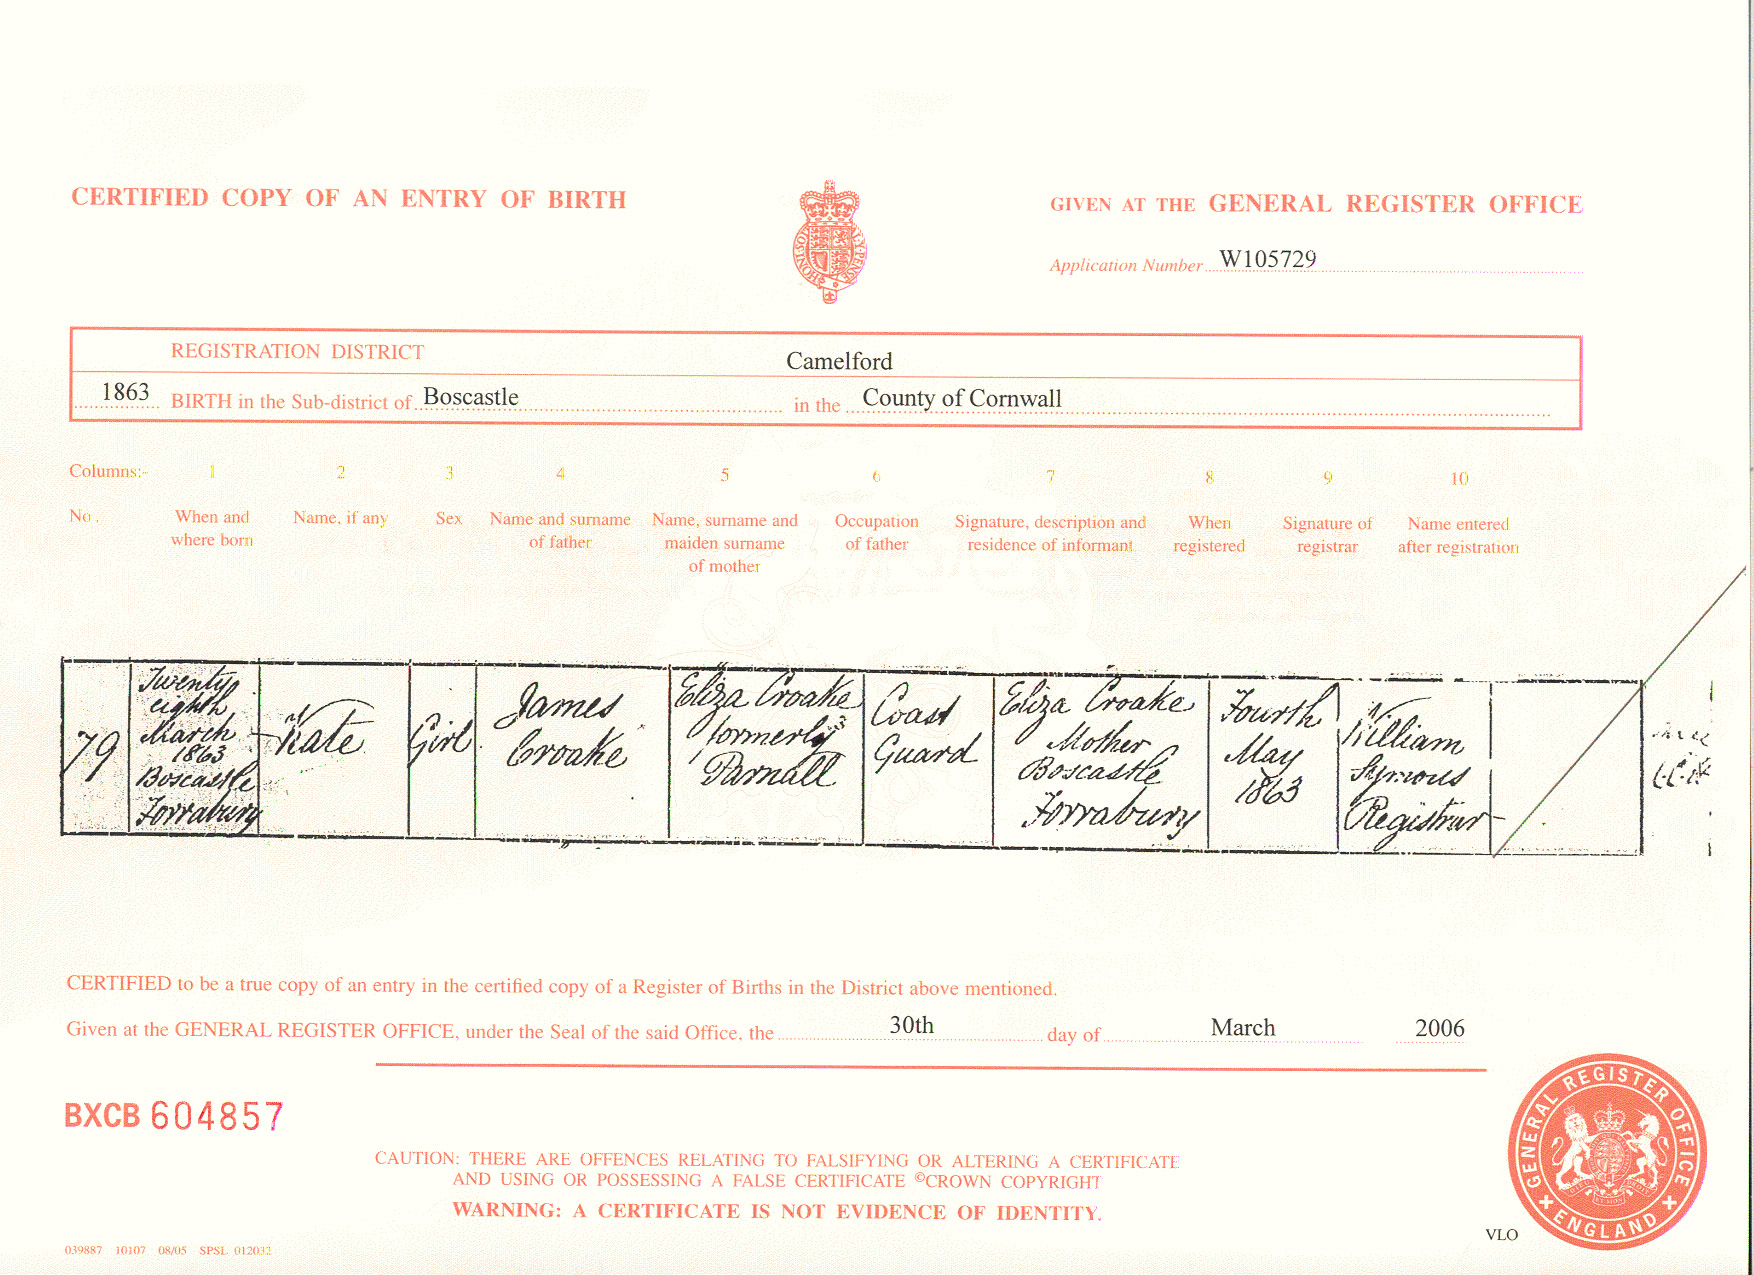 CERTIFIED COPY OF AN ENTRY OF BIRTH
GIVEN AT THE GENERAL REGISTER OFFICE
Application Number W105729
REGISTRATION DISTRICT Camelford
1863 BIRTH in the Sub-district of Boscastle in the County of Cornwall
Columns:- 1 2 3 4 5 6 7 8 9 10
No. When and where born
Name, if any
Sex
Name and surname of father
Name, surname and maiden surname of mother
Occupation of father
Signature, description and residence of informant
When registered
Signature of registrar
Name entered after registration
79
Twenty
eighth
March
1863
Boscastle
Forrabury
Kate
Girl
James
Croake
Eliza Croake
formerly
Parnall
Coast
Guard
Eliza Croake
Mother
Boscastle
Forrabury
Fourth
May
1863
William
Symons
Registrar
CERTIFIED to be a true copy of an entry in the certified copy of a Register of Births in the District above mentioned.
Given at the GENERAL REGISTER OFFICE, under the Seal of the said Office, the 30th day of March 2006
BXCB 604857
CAUTION: THERE ARE OFFENCES RELATING TO FALSIFYING OR ALTERING A CERTIFICATE
AND USING OR POSSESSING A FALSE CERTIFICATE ©CROWN COPYRIGHT
WARNING: A CERTIFICATE IS NOT EVIDENCE OF IDENTITY.
GENERAL REGISTER OFFICE
ENGLAND
VLO
039887 10107 08/05 SPSL 012032